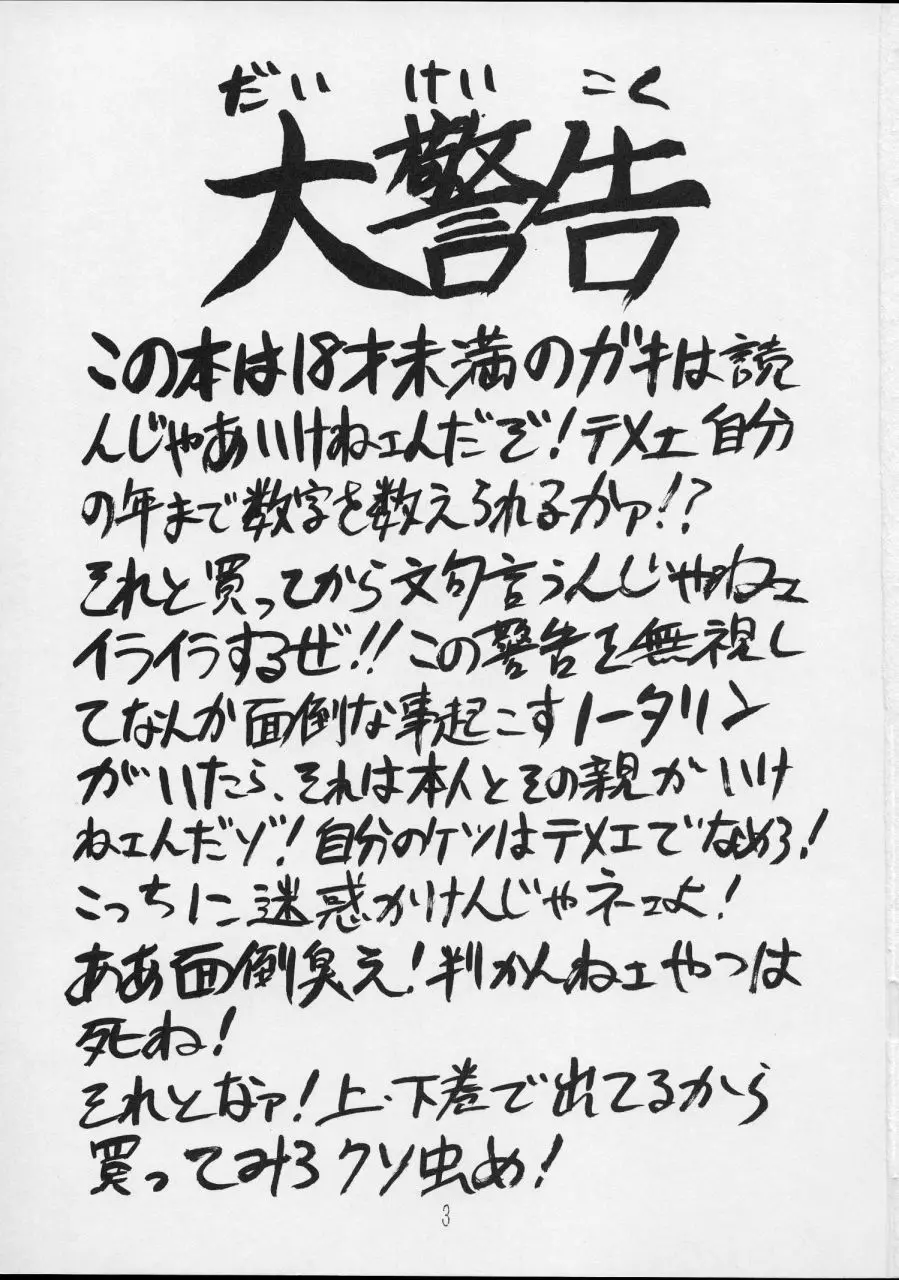 だいけいこく
大警告
この本は18才未満のガキは読
んじゃあいけねェんだぞ!テメェ自分
の年まで数字を数えられるかァ!?
それと買ってから文句言うんじゃねェ
イライラするぜ!!この警告を無視し
てなんか面倒な事起こすノータリン
がいたら、それは本人とその親がいけ
ねェんだゾ!自分のケツはテメエでなめろ!
こっちに迷惑かけんじゃネェよ!
ああ面倒臭え!判かんねェやつは
死ね!
それとなァ!上・下巻で出てるから
買ってみろクソ虫め!
3